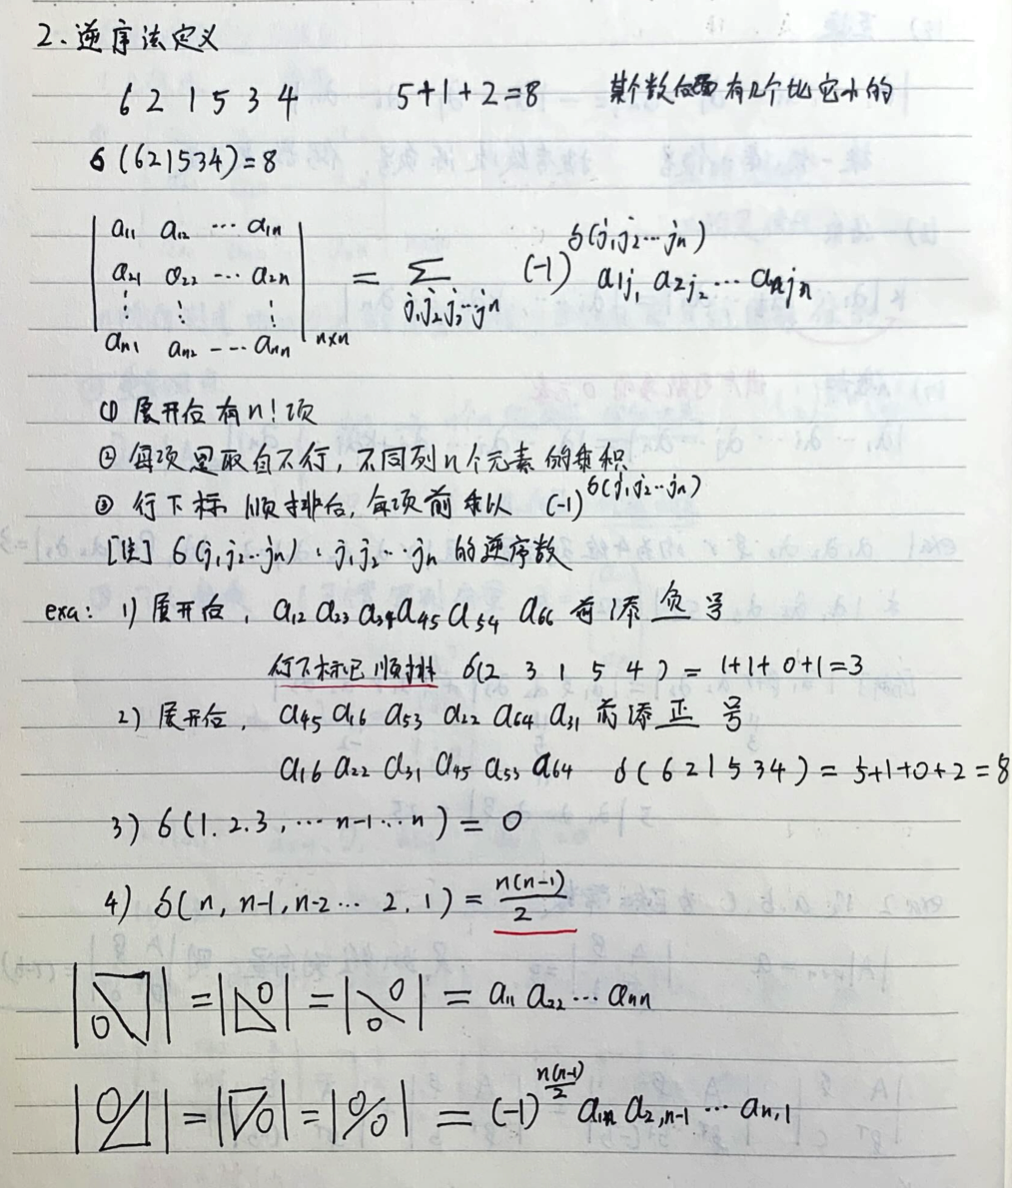 2. 逆序法定义
6 2 1 5 3 4 5+1+2=8 某个数后面有几个比它小的
6(621534)=8
| a11 a12 ⋯ a1n |
| a21 a22 ⋯ a2n | = Σ_{j1j2j3⋯jn} (-1)^{6(j1j2⋯jn)} a1j1 a2j2 ⋯ anjn
| ⋮ ⋮ ⋮ |
| an1 an2 ⋯ ann | n×n
① 展开后有n!项
② 每项是取自不行,不同列n个元素的乘积
③ 行下标顺排后,每项前乘以 (-1)^{6(j1j2⋯jn)}
[注] 6(j1j2⋯jn):j1j2⋯jn的逆序数
exa: 1) 展开后, a12 a23 a34 a45 a54 a66 前添 负 号
行下标已顺排 6(2 3 1 5 4) = 1+1+0+1=3
2) 展开后, a45 a16 a53 a22 a64 a31 前添 正 号
a16 a22 a31 a45 a53 a64 6(621534)=5+1+0+2=8
3) 6(1.2.3,⋯n-1⋯n)=0
4) 6(n,n-1,n-2⋯2.1)=n(n-1)/2
|0| = |0| = |0 0| = a11 a22⋯ann
|0| = |0| = |0 0| = (-1)^{n(n-1)/2} a1n a2,n-1 ⋯ an,1